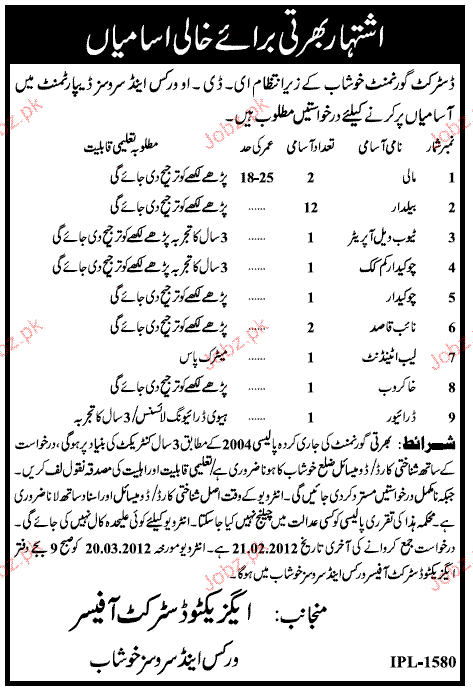 اشتہار بھرتی برائے خالی اسامیاں
ڈسٹرکٹ گورنمنٹ خوشاب کے زیر انتظام ای۔ ڈی۔ او ورکس اینڈ سروسز ڈیپارٹمنٹ میں
آسامیاں پر کرنے کیلئے درخواستیں مطلوب ہیں۔
نمبر شمار نامی آسامی تعداد آسامی عمر کی حد مطلوبہ تعلیمی قابلیت
1 مالی 2 18-25 پڑھے لکھے کو ترجیح دی جائے گی
2 بیلدار 12 ...... پڑھے لکھے کو ترجیح دی جائے گی
3 ٹیوب ویل آپریٹر 1 ...... 3 سال کا تجربہ پڑھے لکھے کو ترجیح دی جائے گی
4 چوکیدار کم کک 1 ...... 3 سال کا تجربہ پڑھے لکھے کو ترجیح دی جائے گی
5 چوکیدار 1 ...... پڑھے لکھے کو ترجیح دی جائے گی
6 نائب قاصد 2 ...... پڑھے لکھے کو ترجیح دی جائے گی
7 لیب اٹینڈنٹ 1 ...... میٹرک پاس
8 خاکروب 1 ...... پڑھے لکھے کو ترجیح دی جائے گی
9 ڈرائیور 1 ...... ہیوی ڈرائیونگ لائسنس/ 3 سال کا تجربہ
شرائط: بھرتی گورنمنٹ کی جاری کردہ پالیسی 2004 کے مطابق 3 سال کنٹریکٹ کی بنیاد پر ہوگی، درخواست
کے ساتھ شناختی کارڈ/ ڈومیسائل ضلع خوشاب کا ہونا ضروری ہے/ تعلیمی قابلیت اور اہلیت کی مصدقہ نقول لف کریں۔
جبکہ نامکمل درخواستیں مسترد کر دی جائیں گی۔ انٹرویو کے وقت اصل شناختی کارڈ/ ڈومیسائل اور اسناد ساتھ لانا ضروری
ہے۔ محکمہ ہذا کی تقرری پالیسی کو کسی عدالت میں چیلنج نہیں کیا جا سکتا۔ انٹرویو کیلئے کوئی علیحدہ کال نہیں کی جائے گی۔
درخواست جمع کروانے کی آخری تاریخ 21.02.2012 ہے۔ انٹرویو مورخہ 20.03.2012 کو صبح 9 بجے دفتر
ایگزیکٹو ڈسٹرکٹ آفیسر ورکس اینڈ سروسز خوشاب میں ہوگا۔
منجانب: ایگزیکٹو ڈسٹرکٹ آفیسر
ورکس اینڈ سروسز خوشاب
IPL-1580
Jobz.pk